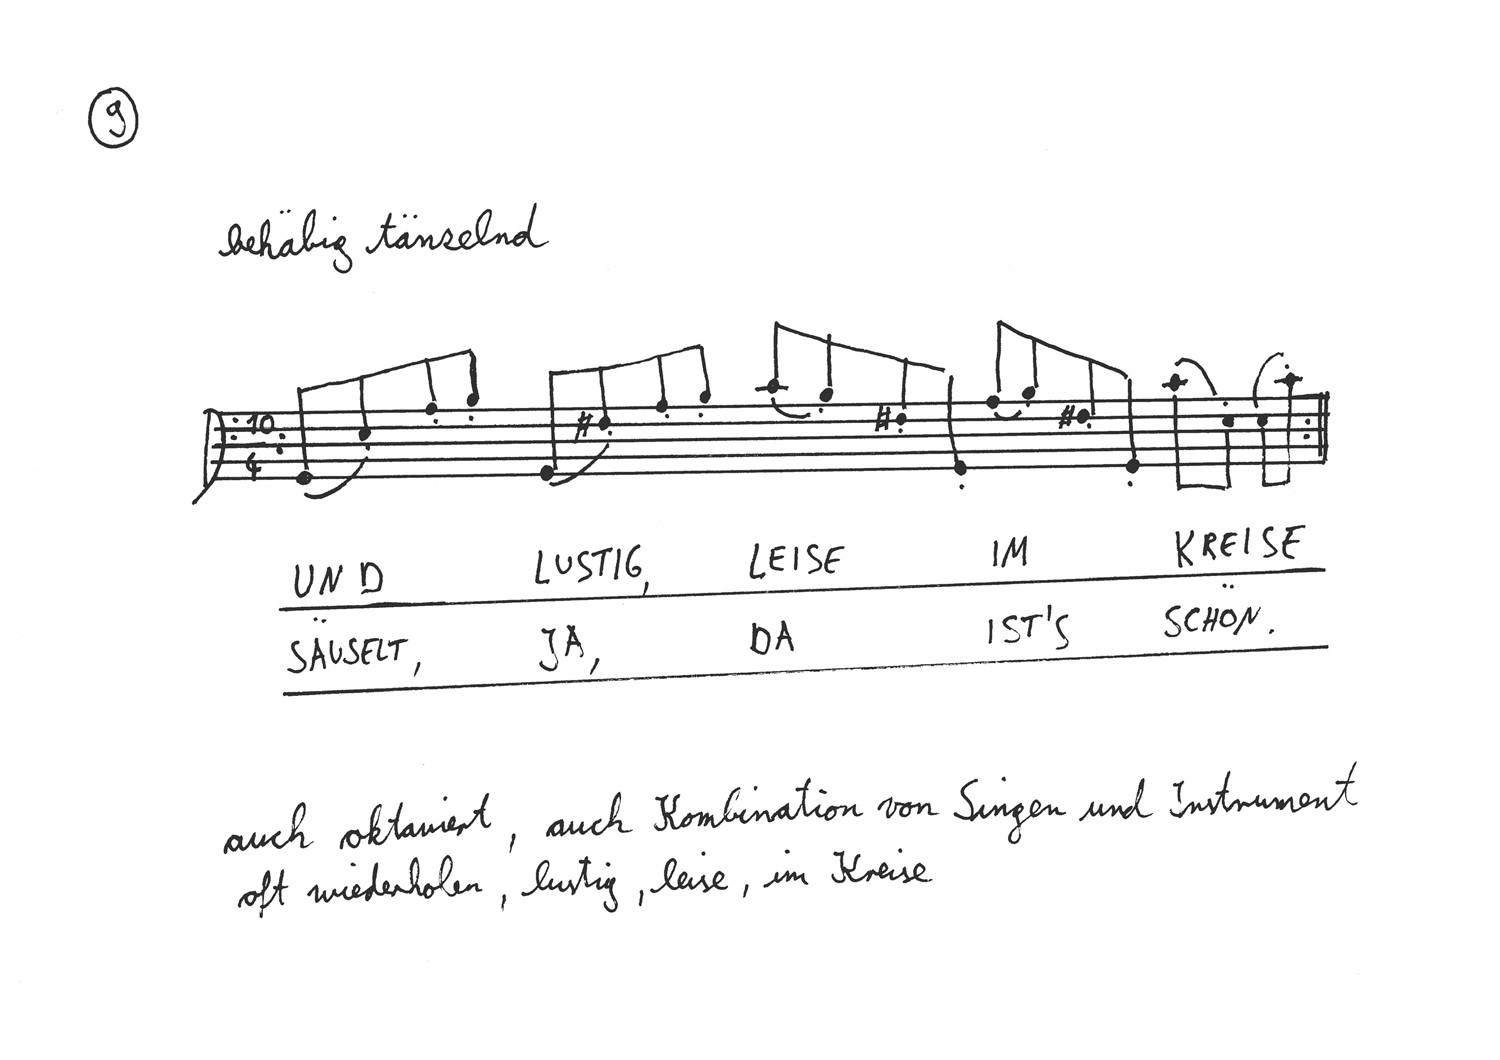 9
behäbig tänzelnd
10
4
UND LUSTIG, LEISE IM KREISE
SÄUSELT, JA, DA IST'S SCHÖN.
auch oktaviert, auch Kombination von Singen und Instrument
oft wiederholen, lustig, leise, im Kreise